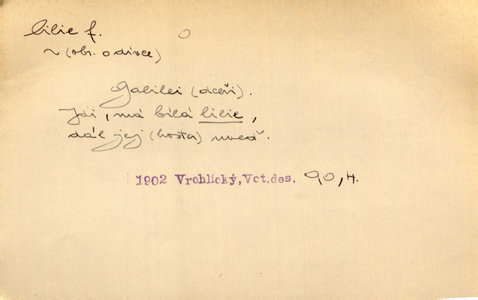 lilie f.
~ (obr. o dívce)
Galilei (dceři).
Jdi, má bílá lilie,
dál jej (hosta) uveď.
1902 Vrchlický, Vct.des. 90, H.